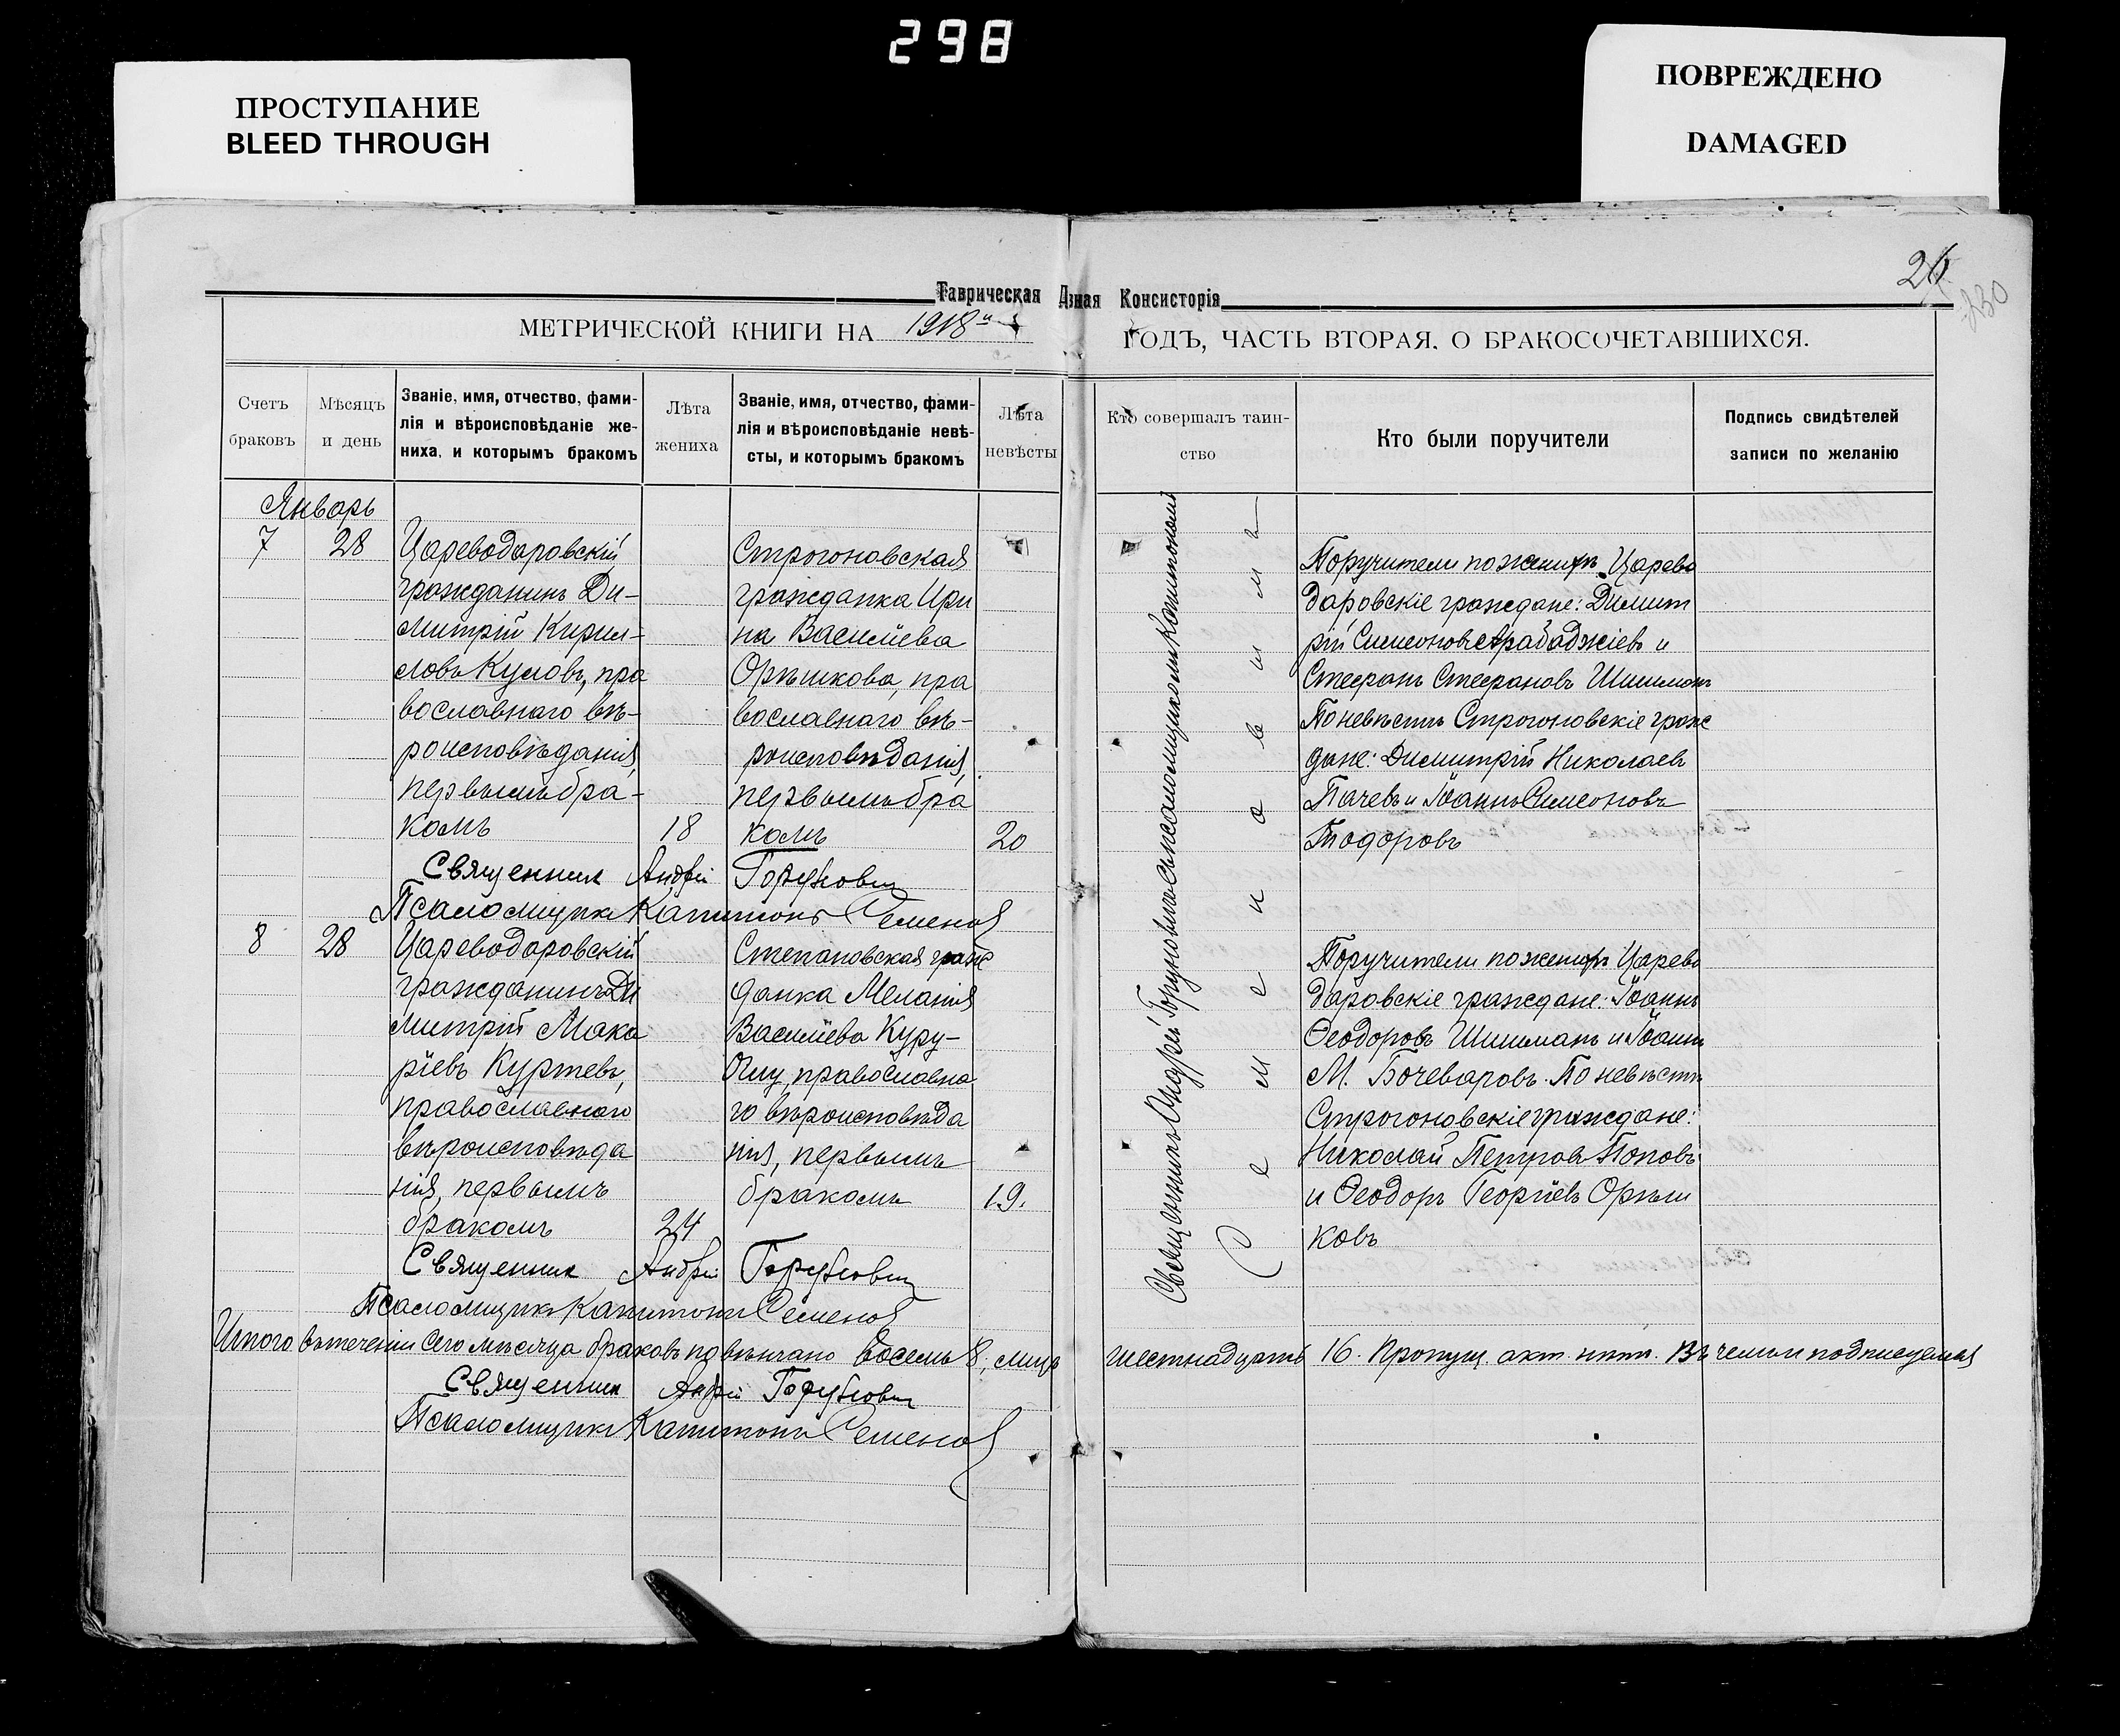 298
ПРОСТУПАНИЕ
BLEED THROUGH
ПОВРЕЖДЕНО
DAMAGED
26
330
Таврическая
Консисторія
МЕТРИЧЕСКОЙ КНИГИ НА 1918й
ГОДЪ, ЧАСТЬ ВТОРАЯ, О БРАКОСОЧЕТАВШИХСЯ.
Счетъ
браковъ
Мѣсяцъ
и день
Званіе, имя, отчество, фами-
лія и вѣроисповѣданіе же-
ниха, и которымъ бракомъ
Лѣта
жениха
Званіе, имя, отчество, фами-
лія и вѣроисповѣданіе невѣ-
сты, и которымъ бракомъ
Лѣта
невѣсты
Кто совершалъ таин-
ство
Кто были поручители
Подпись свидѣтелей
записи по желанію
Январь
7
28
Цареводаровскій
гражданинъ Ди-
митрій Кирил-
ловъ Куловъ, пра
вославнаго вѣ-
роисповѣданія,
первымъ бра-
комъ
18
Строгоновская
гражданка Ири
на Василіева
Орѣшкова, пра
вославнаго вѣ-
роисповѣданія,
первымъ бра
комъ
20
Священникъ Андрей Горунович
Псаломщикъ Капитонъ Семенов
Священникъ Андрей Горуновичъ съ псаломщикомъ Капитономъ
Семеновимъ
Поручители по женихѣ Царево
даровскіе граждане: Димит
рій Симеоновъ Арабаджіевъ и
Стефанъ Стефановъ Шишманъ
По невѣстѣ Строгоновскіе граж
дане: Димитрій Николаевъ
Тачевъ и Іоаннъ Симеоновъ
Тодоровъ
8
28
Цареводаровскій
гражданинъ Ди
митрій Мака
ріевъ Куртевъ,
православнаго
вѣроисповѣда
нія, первымъ
бракомъ
24
Степановская граж
данка Меланія
Василіева Куру-
Огму, православна
го вѣроисповѣда
нія, первымъ
бракомъ
19.
Священникъ Андрей Горунович
Псаломщикъ Капитонъ Семенов
Поручители по женихѣ Царево
даровскіе граждане: Іоаннъ
Ѳеодоровъ Шишманъ и Іоаннъ
М. Бочеваровъ. По невѣстѣ
Строгоновскіе граждане:
Николай Петровъ Поповъ
и Ѳеодоръ Георгіевъ Орѣш
ковъ
Итого въ теченіи сего мѣсяца браковъ повѣнчано восемь 8, лицъ шестнадцать 16. Пропущ. акт. нѣтъ. Въ чемъ и подписуемся
Священник Андрей Горунович
Псаломщикъ Капитонъ Семенов